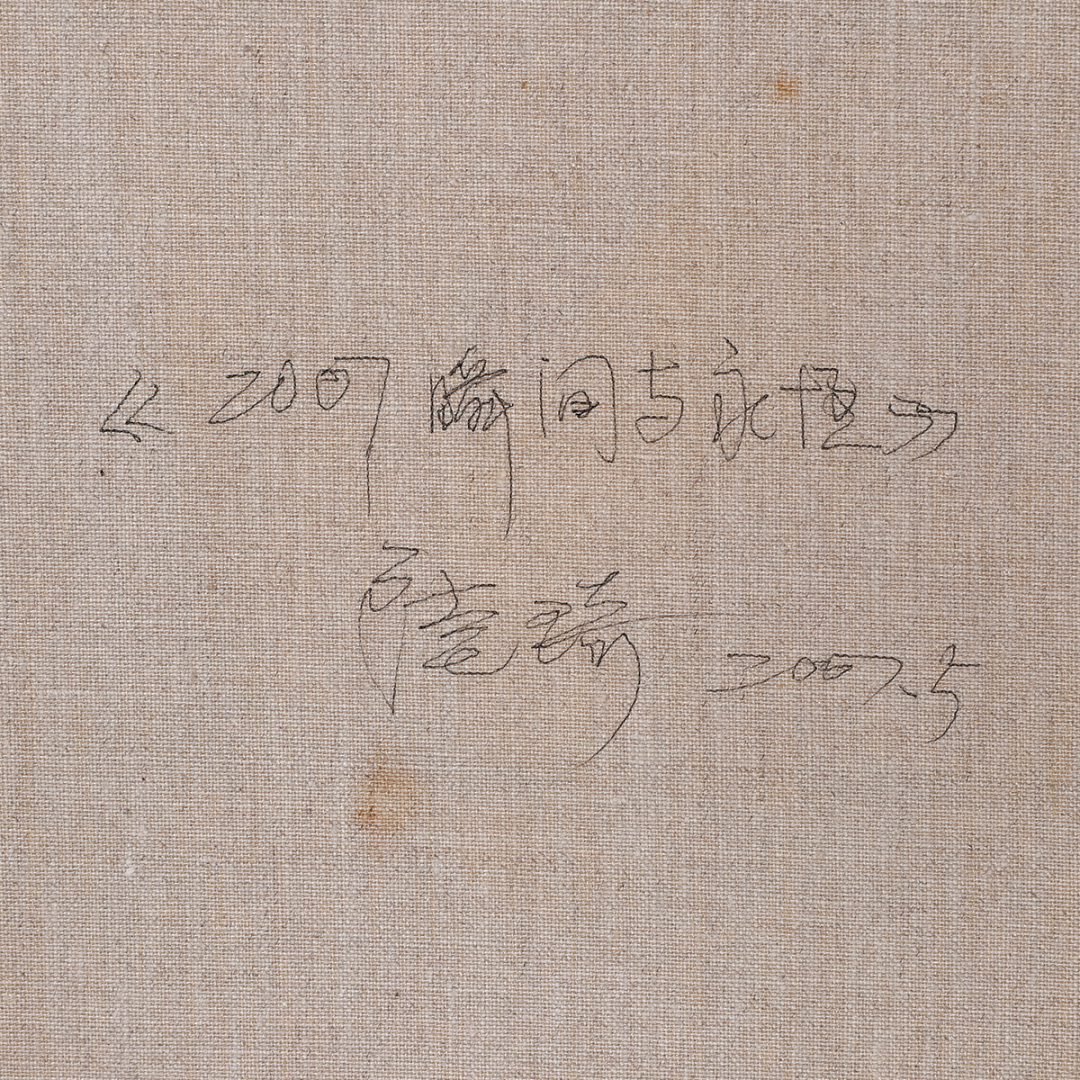 《2007瞬间与永恒》
陸琦 2007.5